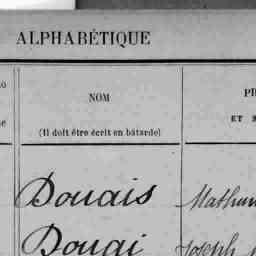 ALPHABÉTIQUE
NOM
(Il doit être écrit en bâtarde)
ET
Douais
Douai Joseph